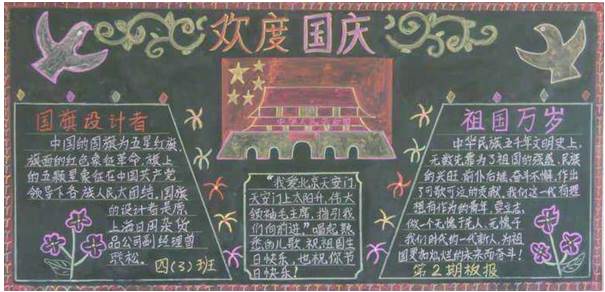 欢度国庆
国旗设计者
中国的国旗为五星红旗
旗面的红色象征革命,旗上
的五颗星象征在中国共产党
领导下各族人民大团结,国旗
的设计者是原
上海日用杂货
品公司副经理曾
联松。
四(3)班
“我爱北京天安门
天安门上太阳升,伟大
领袖毛主席,指引我
们向前进”唱起熟
悉的儿歌,祝祖国生
日快乐,也祝你节
日快乐!
祖国万岁
中华民族五千年文明史上,
无数先辈为了祖国的强盛、民族
的兴旺,前仆后继,奋斗不懈,作出
了可歌可泣的贡献,我们这一代有理
想有作为的青年,要立志,
做一个无愧于先人,无愧于
我们时代的一代新人,为祖
国更加灿烂的未来而奋斗!
第2期板报